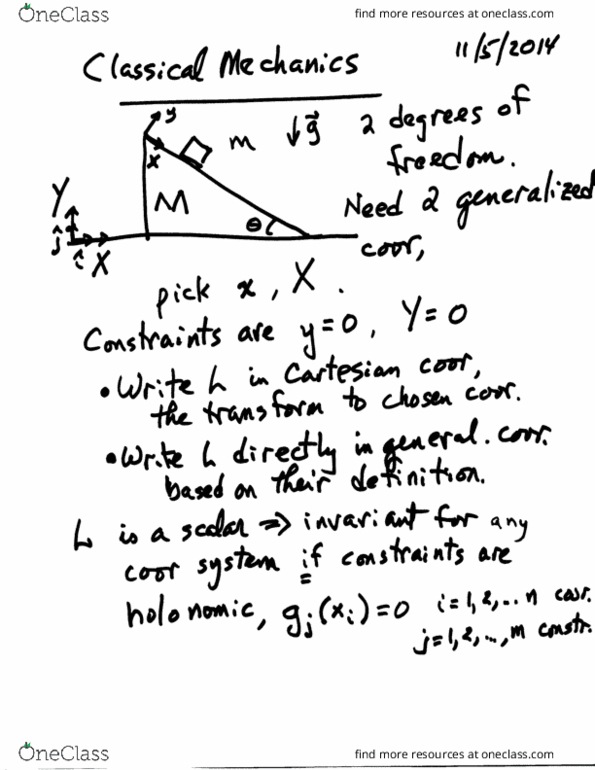 OneClass
find more resources at oneclass.com
Classical Mechanics
11/5/2014
y
x
m
↓g⃗
2 degrees of
freedom.
M
θ
Y
ĵ
î
X
Need 2 generalized
coor,
pick x, X.
Constraints are y=0, Y=0
• Write L in Cartesian coor,
the transform to chosen coor.
• Write L directly in general. coor.
based on their definition.
L is a scalar ⇒ invariant for any
coor system if constraints are
holonomic, gⱼ(xᵢ)=0 i=1,2,..n coor.
j=1,2,...,m constr.
OneClass
find more resources at oneclass.com